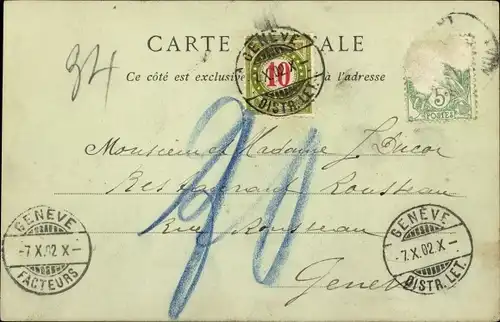 34
CARTE ALE
Ce côté est exclusive à l'adresse
GENÈVE
10
-7.X.02
DISTR. LET.
5
POSTES
Monsieur et Madame J. Ducor
Restaurant Rousseau
Rue Rousseau
Genev
GENÈVE
-7.X.02 X-
FACTEURS
GENÈVE
-7.X.02 X-
DISTR. LET.